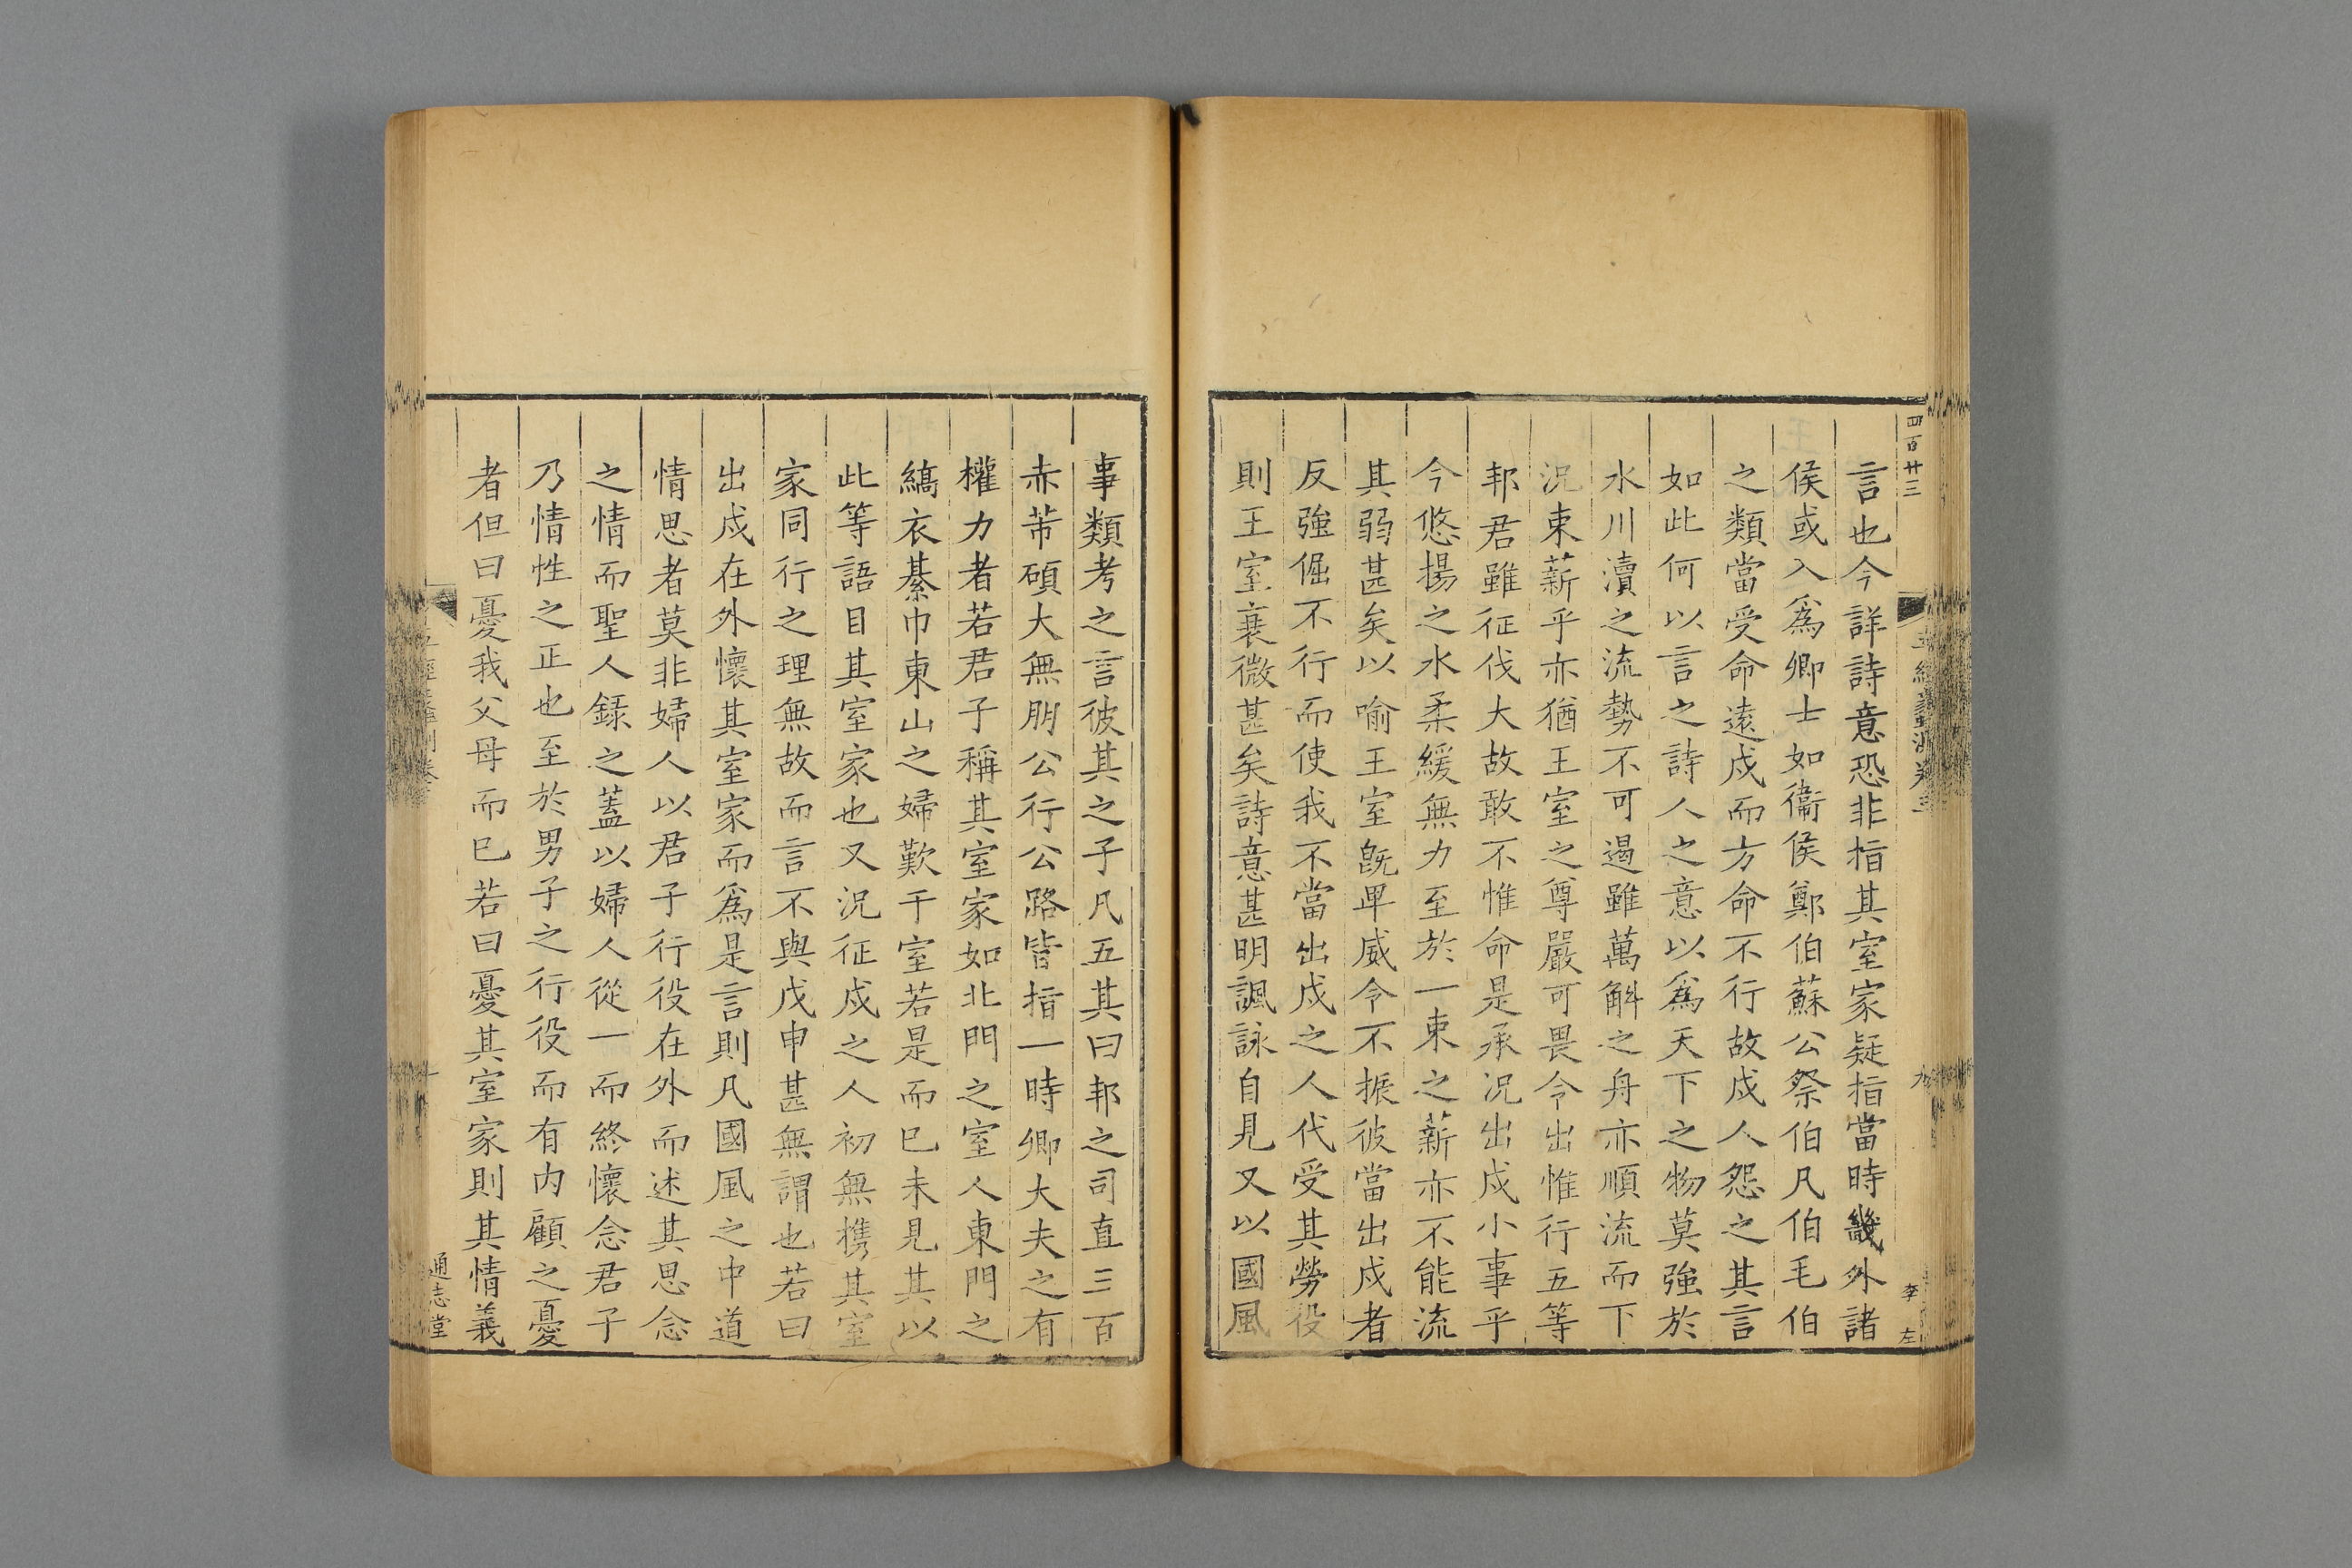 四百廿三
言也今詳詩意恐非指其室家疑指當時畿外諸
侯或入爲卿士如衞侯鄭伯蘇公祭伯凡伯毛伯
之類當受命遠戍而方命不行故戍人怨之其言
如此何以言之詩人之意以爲天下之物莫強於
水川瀆之流勢不可遏雖萬斛之舟亦順流而下
況束薪乎亦猶王室之尊嚴可畏令出惟行五等
邦君雖征伐大故敢不惟命是承況出戍小事乎
今悠揚之水柔緩無力至於一束之薪亦不能流
其弱甚矣以喻王室旣卑威令不振彼當出戍者
反強倔不行而使我不當出戍之人代受其勞役
則王室衰微甚矣詩意甚明諷詠自見又以國風
事類考之言彼其之子凡五其曰邦之司直三百
赤芾碩大無朋公行公路皆指一時卿大夫之有
權力者若君子稱其室家如北門之室人東門之
縞衣綦巾東山之婦歎于室若是而已未見其以
此等語目其室家也又況征戍之人初無携其室
家同行之理無故而言不與戍申甚無謂也若曰
出戍在外懷其室家而爲是言則凡國風之中道
情思者莫非婦人以君子行役在外而述其思念
之情而聖人錄之蓋以婦人從一而終懷念君子
乃情性之正也至於男子之行役而有内顧之憂
者但曰憂我父母而已若曰憂其室家則其情義
通志堂